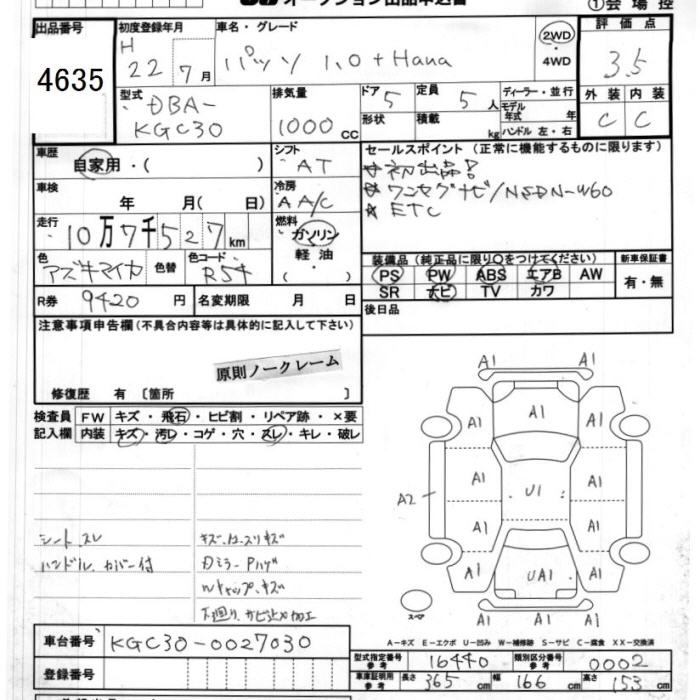 オークション出品申込書
①会場控
出品番号
4635
初度登録年月
H 22年 7月
車名・グレード
パッソ 1.0 + Hana
2WD
・4WD
評価点
3.5
外装 内装
C C
型式
DBA-
KGC30
排気量
1000 cc
ドア 5
形状
定員 5人
積載 kg
ディーラー・並行
モデル年式 年
ハンドル 左・右
車歴
自家用・( )
シフト
AT
車検
年 月( 日)
冷房
AA/C
走行
10万7千527km
燃料
ガソリン
軽油
・( )
色
アズキマイカ
色替
色コード
R54
R券 9420 円
名変期限 月 日
セールスポイント(正常に機能するものに限ります)
★初出品!
★ワンセグナビ/NSDN-W60
★ETC
装備品(純正品に限り○をつけてください)
PS PW ABS エアB AW
SR ナビ TV カワ
新車保証書
有・無
後日品
注意事項申告欄(不具合内容等は具体的に記入して下さい)
原則ノークレーム
修復歴 有〔箇所 〕
検査員記入欄
FW キズ・飛石・ヒビ割・リペア跡・×要
内装 キズ・汚レ・コゲ・穴・スレ・キレ・破レ
シート.スレ
ハンドル.カバー付
キズ.エ.スリキズ
Dミラー Pハゲ
Wキャップ.キズ
下廻り.サビ止メ加工
A1 A1
A1 A1 A1
A1 A1
A2
U1
A1 A1
A1 UA1 A1
スペア
A1 A1
A-キズ E-エクボ U-凹み W-補修跡 S-サビ C-腐食 XX-交換済
車台番号 KGC30-0027030
登録番号
型式指定番号参考 16440
類別区分番号参考 0002
車庫証明用参考 長さ 365cm 幅 166cm 高さ 153cm